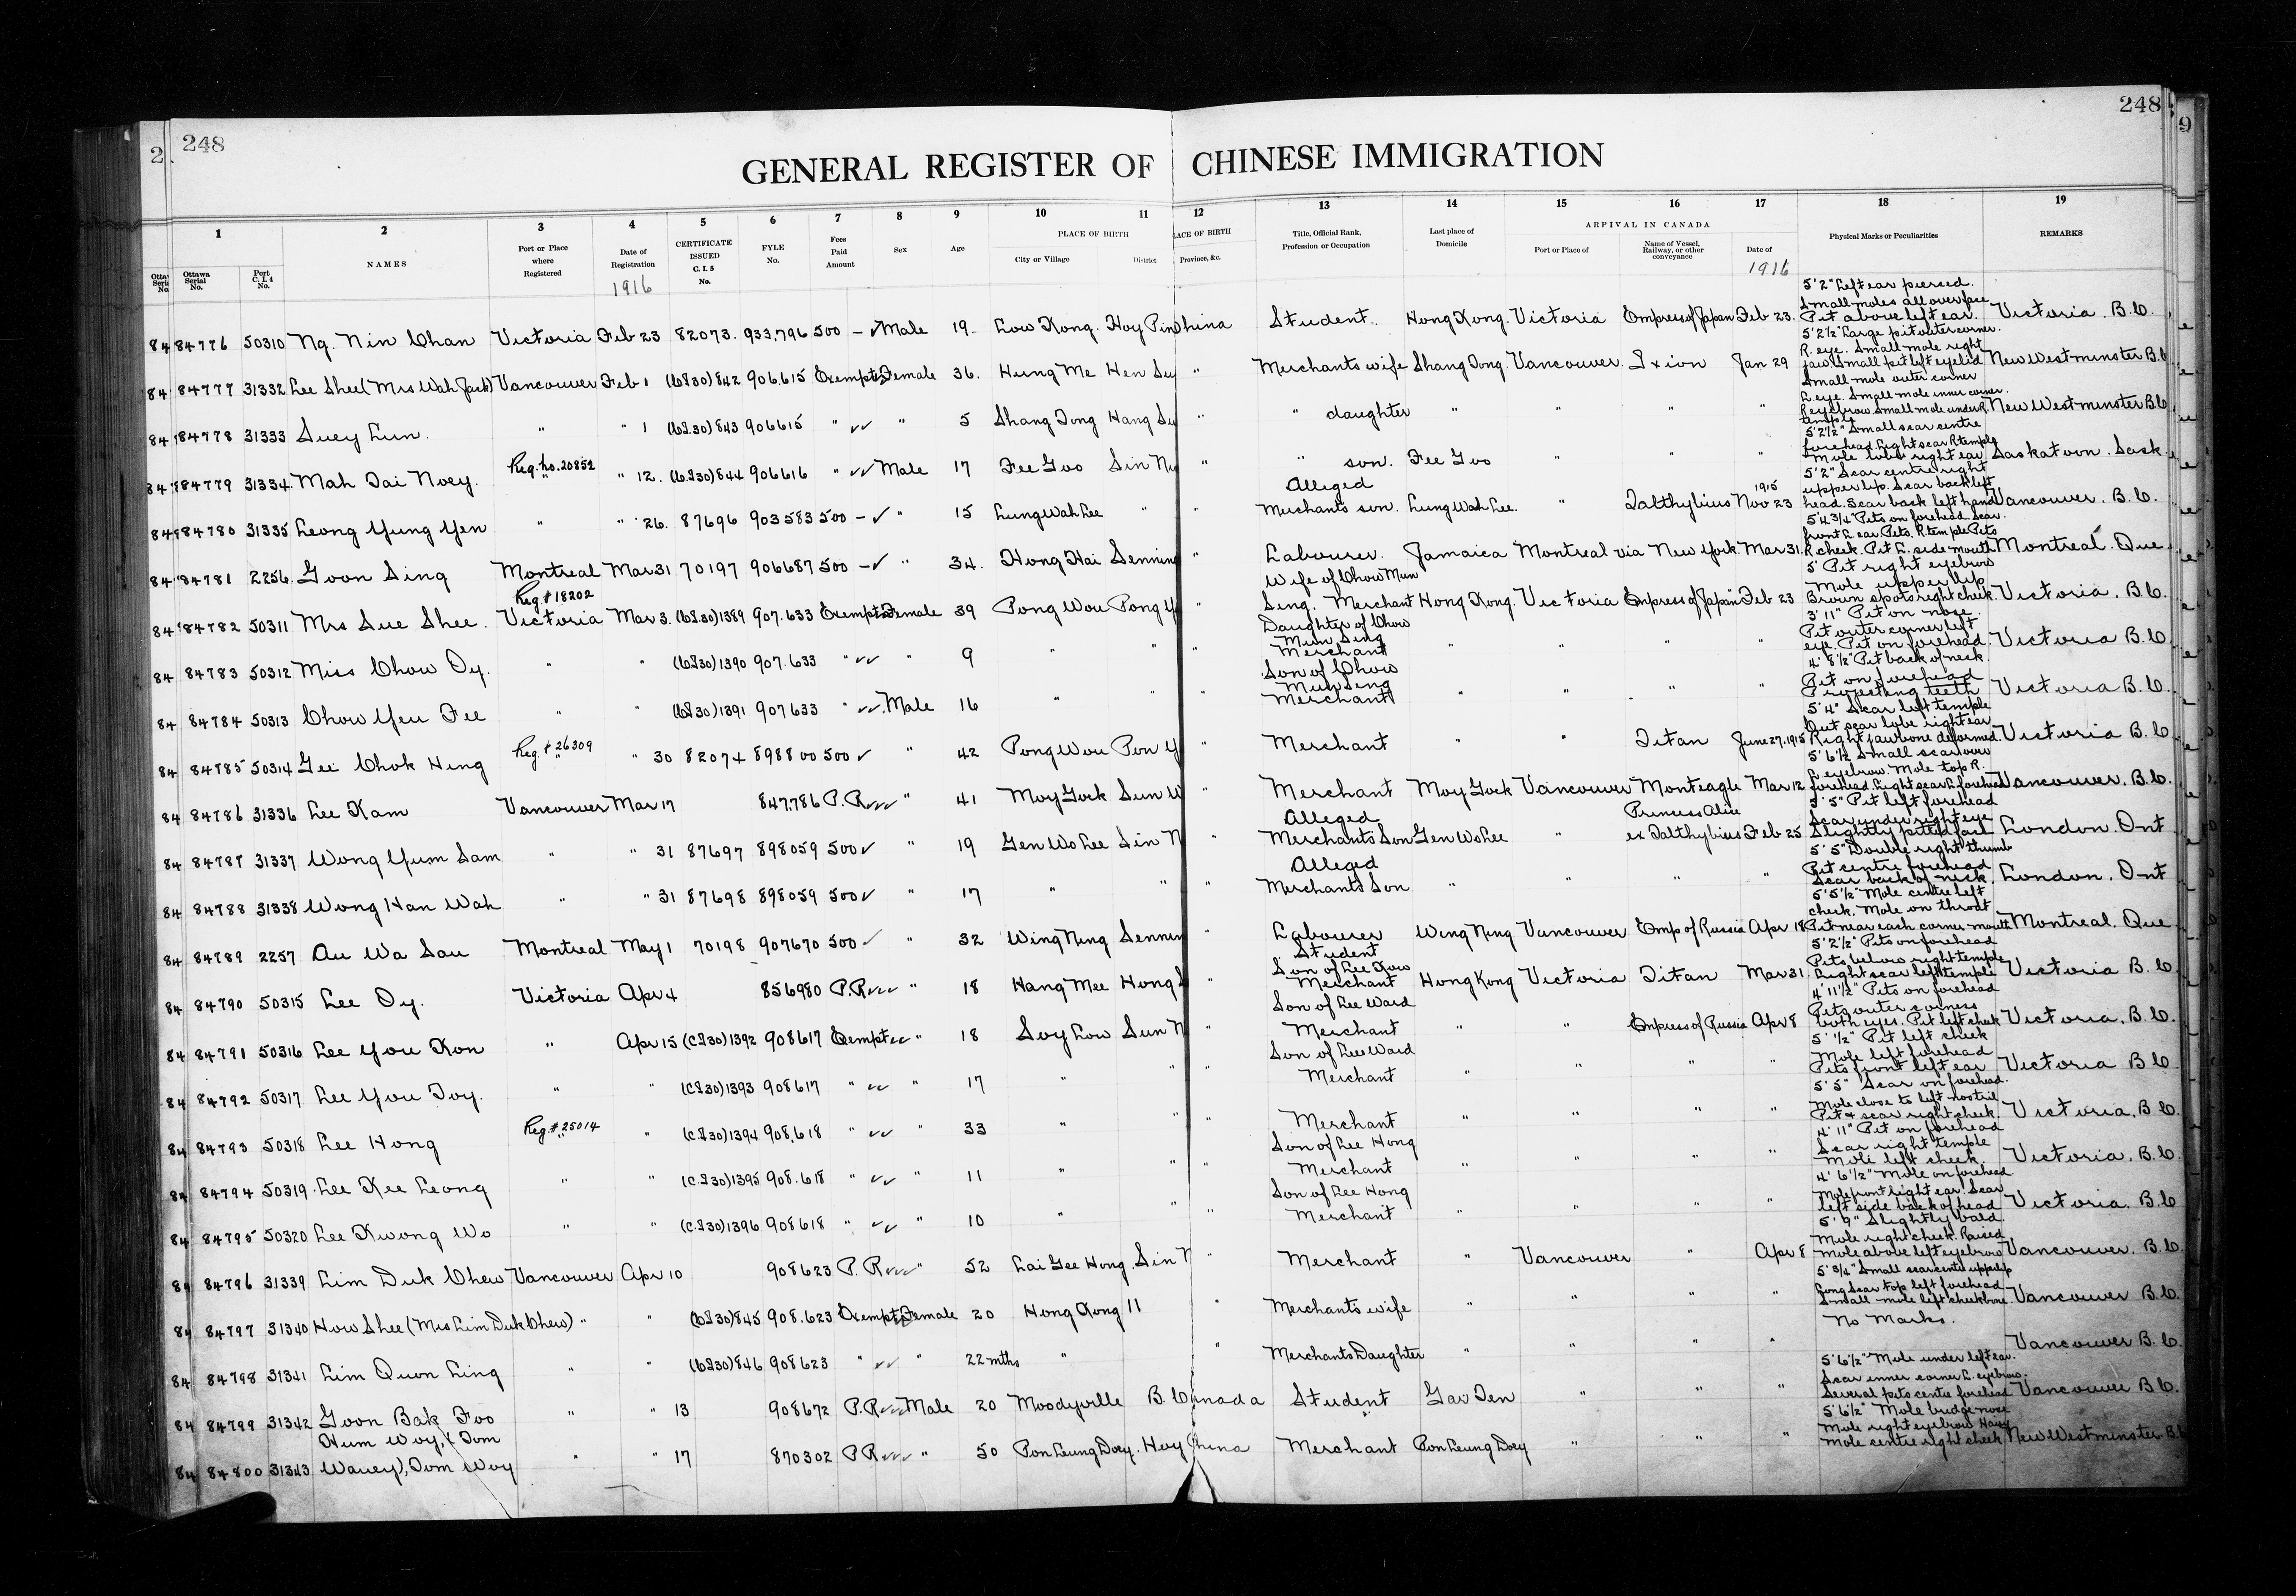 248
248
2
9
GENERAL REGISTER OF CHINESE IMMIGRATION
1 2 3 4 5 6 7 8 9 10 11 12 13 14 15 16 17 18 19
Ottawa Serial No. Port C. I. 4 No. NAMES Port or Place where Registered Date of Registration CERTIFICATE ISSUED C. I. 5 No. FYLE No. Fees Paid Amount Sex Age PLACE OF BIRTH City or Village District PLACE OF BIRTH Province, &c. Title, Official Rank, Profession or Occupation Last place of Domicile ARRIVAL IN CANADA Port or Place of Name of Vessel, Railway, or other conveyance Date of Physical Marks or Peculiarities REMARKS
1916 1916
84776 50310 Ng. Nin Chan Victoria Feb 23 82073. 933,796 500 – ✓ Male 19. Low Kong. Hoy Pin China Student. Hong Kong. Victoria Empress of Japan Feb 23. 5'2" Left ear pierced. Small moles all over face Pit above left ear. Victoria. B.C.
84777 31332 Lee Shee (Mrs Wah Jack) Vancouver Feb 1 (C.I.30) 842 906,615 Exempt Female 36. Hung Me Hen Su " Merchants wife Shang Tong. Vancouver. Ixion Jan 29 5'2½" Large pit outer corner R. eye. Small mole right jaw. Small pit left eyelid New Westminster B.C
84778 31333 Suey Lun. " " 1 (C.I.30) 843 906615 " ✓✓ " 5 Shang Tong Hang Su " " daughter " " " " Small mole outer corner L. eye. Small mole inner corner R eyebrow Small mole under R. temple New Westminster B.C
84779 31334. Mah Tai Noey. Reg. No. 20852 " " 12. (C.I.30) 844 906616 " ✓✓ Male 17 Fee Goo Sin N " " son. Fee Goo " " " 5'2½" Small scar centre forehead. Light scar R temple Mole lobe right ear Saskatoon. Sask.
84780 31335 Leong Yung Yen " " 26. 87696 903583 500 – ✓ " 15 Lung Wah Lee " " Alleged Merchants son. Lung Wah Lee. " Talthybius 1915 Nov 23 5'2" Scar centre right upper lip. Scar back left head. Scar back left hand Vancouver. B.C.
84781 2256. Goon Sing Montreal Mar 31 70197 906687 500 – ✓ " 34. Hong Hai Senning " Labourer. Jamaica Montreal via New York Mar 31. 5'4¾" Pits on forehead. Scar front L ear Pits. R. temple Pits R. cheek. Pit L. side mouth Montreal. Que
84782 50311 Mrs Sue Shee. Reg. # 18202 Victoria Mar 3. (C.I.30) 1389 907.633 Exempt Female 39 Pong Wou Pong Y " Wife of Chow Mun Sing. Merchant Hong Kong. Victoria Empress of Japan Feb 23 5' Pit right eyebrow Mole upper lip Brown spots right cheek. Victoria. B.C.
84783 50312 Miss Chow Oy. " " (C.I.30) 1390 907.633 " ✓✓ " 9 " " " Daughter of Chow Mun Sing Merchant " " " " 3'11" Pit on nose. Pit outer corner left eye. Pit on forehead. Victoria B.C.
84784 50313 Chow Yeu Fee " " (C.I.30) 1391 907633 " ✓✓. Male 16 " " " Son of Chow Mun Sing Merchant " " " " 4' 8½" Pit back of neck. Pit on forehead Projecting teeth Victoria B.C.
84785 50314 Gei Chok Heng Reg. # 26309 " " 30 82074 898800 500 ✓ " 42 Pong Wou Pon Y " Merchant " " Titan June 27, 1915 5'4" Scar left temple Cut scar lobe right ear Right jawbone deformed. Victoria B.C
84786 31336 Lee Kam Vancouver Mar 17 847,786 P.R ✓✓✓ " 41 Moy Gock Sun W Merchant Moy Gock Vancouver Monteagle Mar 12 5'6½ Small scar over L eyebrow. Mole top R. forehead. Light scar L forehead Vancouver. B.C.
84787 31337 Wong Yum Sam " " 31 87697 898059 500 ✓ " 19 Gen Wo Lee Sin N " Alleged Merchants Son Gen Wo Lee " Princess Alice ex Talthybius Feb 25 5'5" Pit left forehead Scar under right eye Slightly pitted face London. Ont
84788 31338 Wong Han Wah " " 31 87698 898059 500 ✓ " 17 " " " Alleged Merchants Son " " " " 5'5" Double right thumb Pit centre forehead Scar back of neck. London. Ont
84789 2257 Au Wa Sau Montreal May 1 70198 907670 500 ✓ " 32 Wing Ning Sennin " Labourer Wing Ning Vancouver Emp of Russia Apr 18 5'5½" Mole centre left cheek. Mole on throat Pit near each corner mouth Montreal. Que
84790 50315 Lee Oy. Victoria Apr 4 856980 P.R ✓✓✓ " 18 Hang Mee Hong S Student Son of Lee Kow Merchant Hong Kong Victoria Titan Mar 31. 5'2½" Pits on forehead Pits below right temple Light scar left temple Victoria B.C.
84791 50316 Lee You Kon " Apr 15 (C.I.30) 1392 908617 Exempt ✓✓ " 18 Soy Low Sun N " Son of Lee Ward Merchant " " Empress of Russia Apr 8 4'11½" Pits on forehead Pits outer corners both eyes. Pit left cheek Victoria. B.C.
84792 50317 Lee You Toy. " " (C.I.30) 1393 908617 " ✓✓ " 17 " " " Son of Lee Ward Merchant " " " " 5'½" Pit left cheek Mole left forehead Pits front left ear Victoria B.C.
84793 50318 Lee Hong Reg. # 25014 " " (C.I.30) 1394 908,618 " ✓✓ " 33 " " " Merchant " " " " 5'5" Scar on forehead. Mole close to left nostril Pit & scar right cheek. Victoria, B.C.
84794 50319. Lee Kee Leong " " (C.I.30) 1395 908.618 " ✓✓ " 11 " " " Son of Lee Hong Merchant " " " " 4'11" Pit on forehead Scar right temple Mole left cheek. Victoria. B.C.
84795 50320 Lee Kwong Wo " " (C.I.30) 1396 908618 " ✓✓ " 10 " " " Son of Lee Hong Merchant " " " " 4'6½" Mole on forehead Mole front right ear. Scar left side back of head Victoria. B.C
84796 31339 Lim Duk Chew Vancouver Apr 10 908623 P.R ✓✓✓ " 52 Lai Gee Hong. Sin N " Merchant " Vancouver " Apr 8 5'9" Slightly bald. Mole right cheek. Raised mole above left eyebrow Vancouver. B.C.
84797 31340 How Shee (Mrs Lim Duk Chew) " " (C.I.30) 845 908.623 Exempt Female 20 Hong Kong 11 " Merchants wife " " " " 5'¾" Small scar centre upper lip Long scar top left forehead Small mole left cheekbone. Vancouver B.C.
84798 31341 Lim Quon Ling " " (C.I.30) 846 908623 " ✓✓ " 22 mths " " Merchants Daughter " " " " No Marks. Vancouver B.C.
84799 31342 Goon Bak Foo " " 13 908672 P.R ✓✓✓ Male 20 Moodyville B.C. Canada Student Gav Ten " " " 5'6½" Mole under left ear. Scar inner corner L. eyebrow. Several pits centre forehead Vancouver B.C.
84800 31343 Hum Woy, (Tom Wauey), Tom Woy " " 17 870302 P R ✓✓✓ " 50 Pon Leung Doey. Hoy China Merchant Pon Leung Doey " " " 5'6½" Mole bridge nose Mole right eyebrow Hairy mole centre right cheek New Westminster. B.C